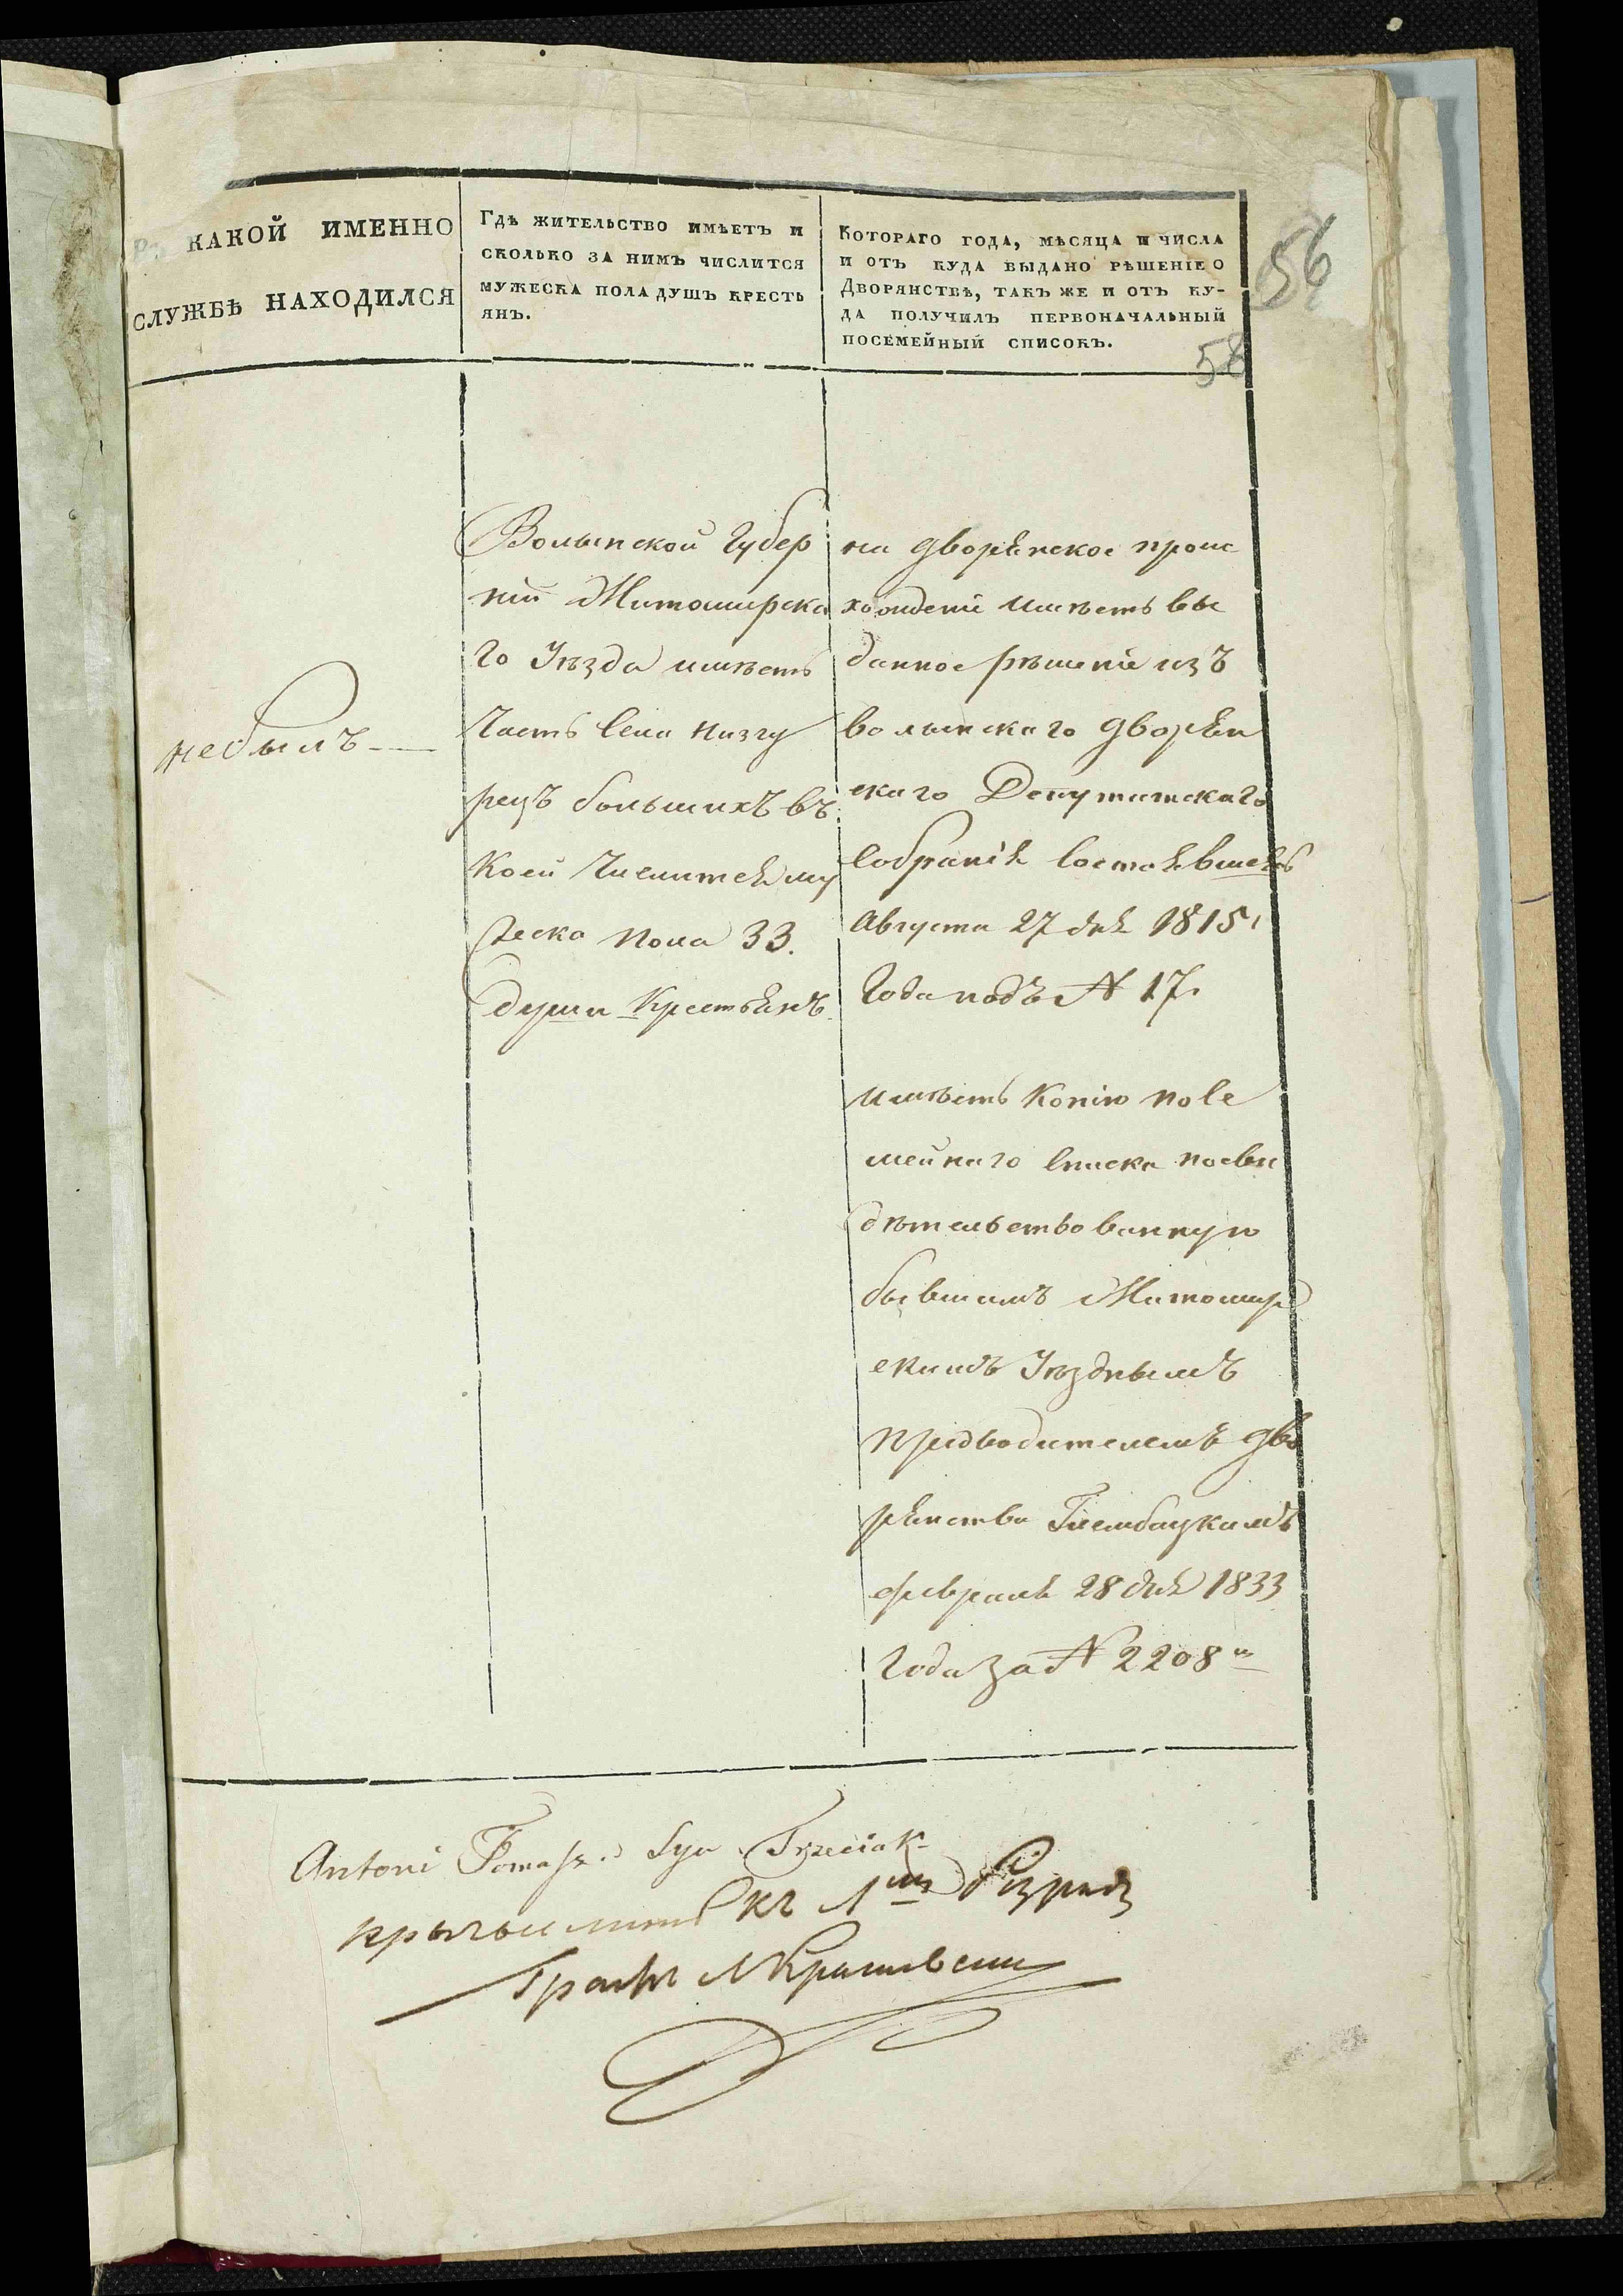 56
58
Въ КАКОЙ ИМЕННО
СЛУЖБѢ НАХОДИЛСЯ
Гдѣ жительство имѣетъ и
сколько за нимъ числится
мужеска пола душъ кресть
янъ.
Котораго года, мѣсяца и числа
и отъ куда выдано рѣшеніе о
Дворянствѣ, такъ же и отъ ку-
да получилъ первоначальный
посемейный списокъ.
небылъ
Волынской Губер
ніи Житомирска
го Уѣзда имѣетъ
Часть Села Низгу
рецъ большихъ въ
Коей Числитсяму
жеска пола 33.
души Крестьянъ
на дворянское проис
хожденіе имѣетъ вы
данное рѣшеніе изъ
волынскаго дворян
скаго Депутатскаго
Собранія Состоявшеесь
Августа 27 дня 1815.
Года подъ N 17.
имѣетъ Копію посе
мейнаго Списка посви
дѣтельствованную
бывшимъ Житомир
скимъ Уѣзднымъ
предводителемъ дво
рянства Гіембоцкимъ
февраля 28 дня 1833
Года за N 2208 м
Antoni Tomasz. Syn Trzeciak
къ 1му Разряду
Графъ